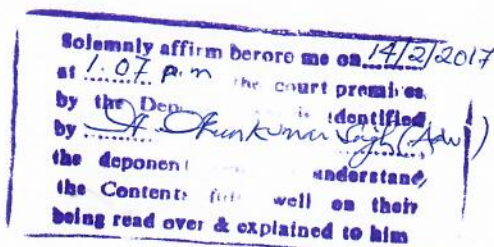 Solemnly affirm berore me on 14/2/2017
at 1.07 p.m the court premises
by the Dep is identified
by Kumar Singh (Adv)
the deponent understand,
the Contents full well on their
being read over & explained to him